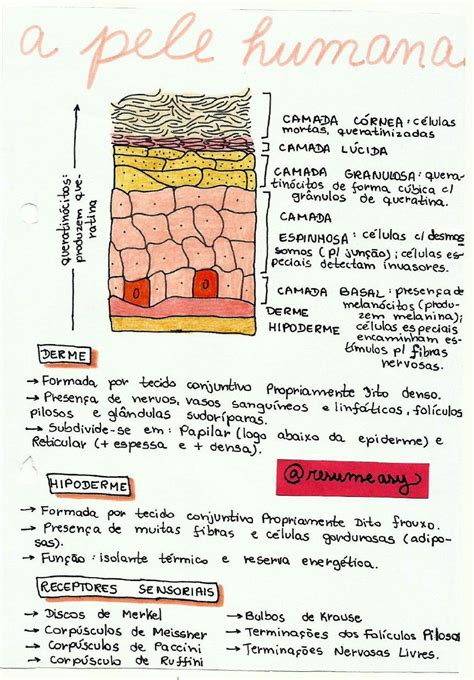 a pele humana
queratinócitos:
produzem que-
ratina
CAMADA CÓRNEA: células
mortas, queratinizadas
CAMADA LÚCIDA
CAMADA GRANULOSA: quera-
tinócitos de forma cúbica c/
grânulos de queratina.
CAMADA
ESPINHOSA: células c/ desmos
somos (p/ junção); células es-
peciais detectam invasores.
CAMADA BASAL: presença de
melanócitos (produ-
zem melanina);
células especiais
encaminham es-
tímulos p/ fibras
nervosas.
DERME
HIPODERME
DERME
→ Formada por tecido conjuntivo Propriamente Dito denso.
→ Presença de nervos, vasos sanguíneos e linfáticos, folículos
pilosos e glândulas sudoríparas.
→ Subdivide-se em: Papilar (logo abaixo da epiderme) e
Reticular (+ espessa e + densa).
@resumeasy
HIPODERME
→ Formada por tecido conjuntivo Propriamente Dito frouxo.
→ Presença de muitas fibras e células gordurosas (adipo-
sas).
→ Função: isolante térmico e reserva energética.
RECEPTORES SENSORIAIS
→ Discos de Merkel
→ Corpúsculos de Meissner
→ Corpúsculos de Paccini
→ Corpúsculo de Ruffini
→ Bulbos de Krause
→ Terminações dos Folículos Pilosos
→ Terminações Nervosas Livres.